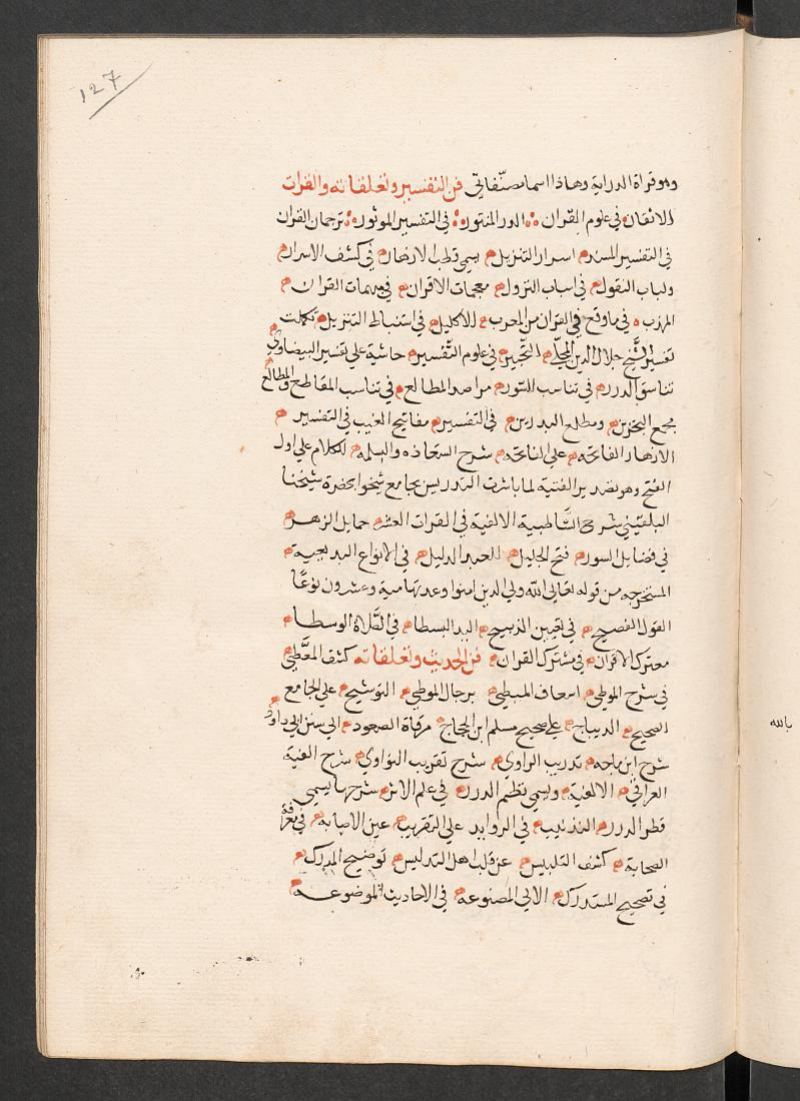 127
وهو قراة الدراية وهاذا اسما مصنّفاتي فن التفسير وتعلقاته والقرات
الاتقان في علوم القران الدر المنثور في التفسير الموثور ترجمان القران
في التفسير المسند اسرار التنزيل يسمي قطب الازهار في كشف الاسرار
ولباب النقول في اسباب النزول مفحمات الاقران في مبهمات القران
المهذب في ما وقع في القران من المعرب الاكليل في استنباط التنزيل تكملت
تفسير الشيخ جلال الدين المحلّي التحبير في علوم التفسير حاشية علي تفسير البيضاوي
تناسق الدرر في تناسب السور مراصد المطالع في تناسب المقاطع والمطالع
مجمع البحرين ومطلع البدرين في التفسير مفاتيح الغيب في التفسير
الازهار الفاتحة علي الفاتحة شرح الستعاذه والبسلمه الكلام علي اول
الفتح وهو تصدير الفتية لما باشرت التدريس بجامع شيخوا بحضرة شيخنا
البلقيني شرح الشاطبية الالفية في القرات العشر حمايل الزهر
في فضايل السور فتح الجليل للعبد الذليل في الانواع البديعية
المستخرجه من قوله تعالي الله ولي الذين امنوا وعدتها مية وعشرون نوعًا
القول الفصيح في تعين الذبيح اليد البسطا في الصّلاة الوسطا
معترك الاقران في مشترك القران فن الحديث وتعلقاته كشف المغطي
في شرح الموطي اسعاف المبطي برجال الموطي التوشيح علي الجامع
الصحيح الديباج علي صحيح مسلم ابن الحجاج مرقاة الصعود الي سنن ابي داود
شرح ابن ماجه تدريب الراوي شرح تقريب النواوي شرح الفية
العراقي الالفية ويسمي نظم الدرر في علم الاثر شرحها يسمي
قطر الدرر التذنيب في الزوايد علي التقريب عين الاصابه في معرفة
الصحابة كشف التلبيس عن قلب اهل التدليس توضيح المدرك
في تصحيح المستدرك الالي المصنوعه في الاحاديث الموضوعه
بالله